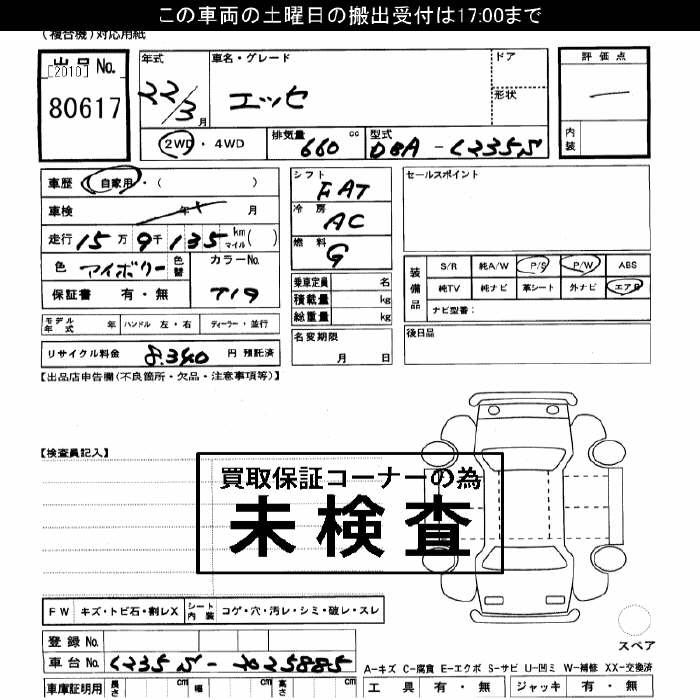 この車両の土曜日の搬出受付は17:00まで
(複合機)対応用紙
出品No.
[2010]
80617
年式
22/3月
車名・グレード
エッセ
ドア
形状
評価点
内装
2WD・4WD
排気量 660 cc
型式 DBA-L235S
車歴 自家用・( )
車検 年 月
走行 15万9千135 km マイル( )
色 アイボリー 色替
カラーNo.
719
保証書 有・無
シフト
FAT
冷房
AC
燃料
G
乗車定員 名
積載量 kg
総重量 kg
セールスポイント
装備品
S/R 純A/W P/S P/W ABS
純TV 純ナビ 革シート 外ナビ エアB
ナビ型番:
モデル年式 年 ハンドル 左・右 ディーラー・並行
名変期限
月 日
後日品
リサイクル料金 8,340 円 預託済
【出品店申告欄(不良箇所・欠品・注意事項等)】
【検査員記入】
買取保証コーナーの為
未検査
FW キズ・トビ石・割レX シート内装 コゲ・穴・汚レ・シミ・破レ・スレ
登録No.
スペア
車台No. L235S-2025885
A-キズ C-腐食 E-エクボ S-サビ U-凹ミ W-補修 XX-交換済
車庫証明用 長さ cm 幅 cm 高さ cm
工具 有・無 ジャッキ 有・無